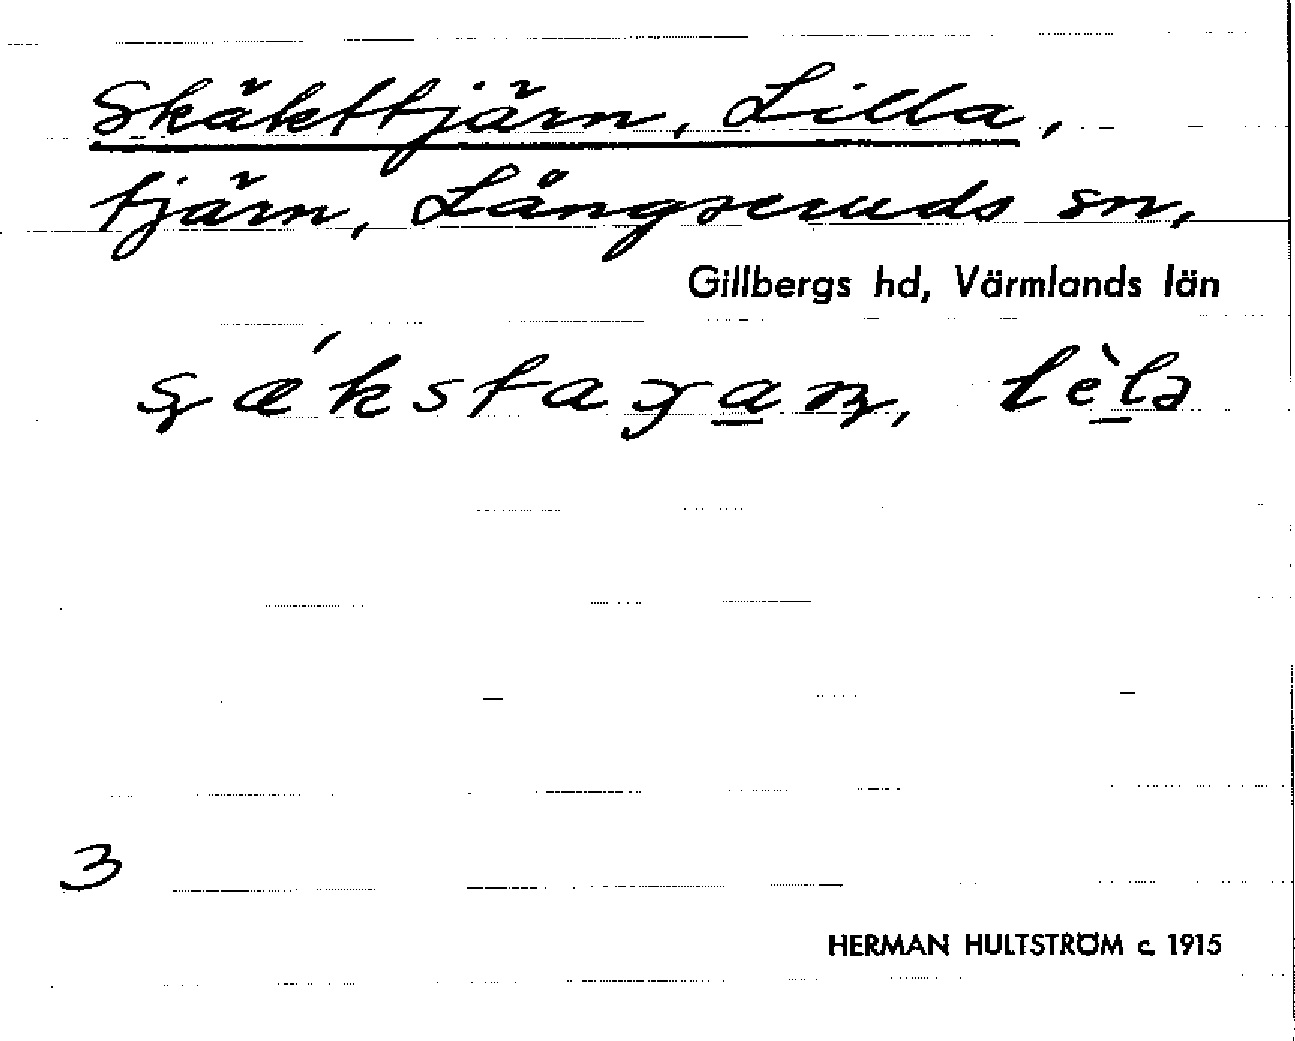 Skäkttjärn, Lilla,
tjärn, Långseruds sn,
Gillbergs hd, Värmlands län
lèlə
3
HERMAN HULTSTRÖM c. 1915